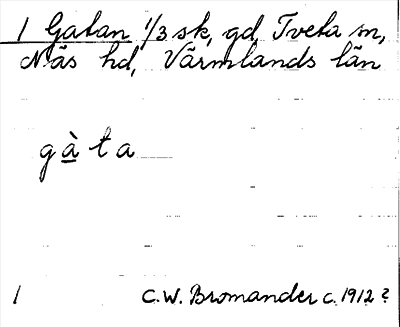 1 Gatan 1/3 sk, gd, Tveta sn,
Näs hd, Värmlands län
gàta
1 C.W. Bromander c. 1912?